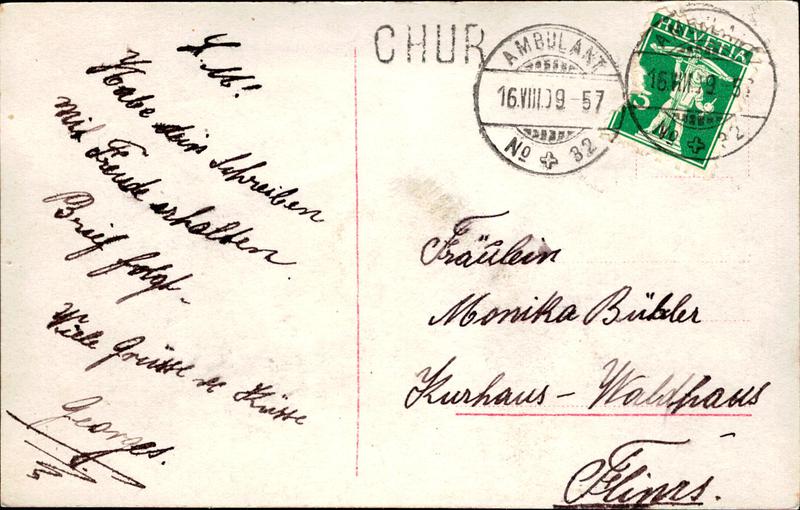 L. M!
Habe dein Schreiben
mit Freude erhalten.
Brief folgt.
Viele Grüsse u Küsse
Georges.
CHUR
AMBULANT
16.VIII.09-57
No 32
HELVETIA
AMBULANT
16.VIII.09-57
No 32
Fräulein
Monika Bühler
Kurhaus - Waldhaus
Flims.